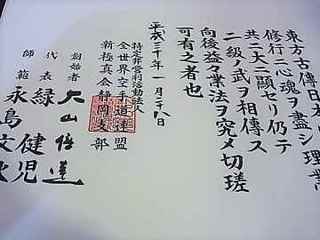 東方古傳日本
修行ニ心魂ヲ盡シ理業
共ニ大ニ顯セリ仍テ
二級ノ武ヲ相傳ス
向後益々業法ヲ究メ切瑳
可有之者也
平成三十年一月二十八日
特定非営利活動法人
全世界空手道連盟
新極真会静岡支部
創始者 大山倍達
代表 緑健児
師範 永島文